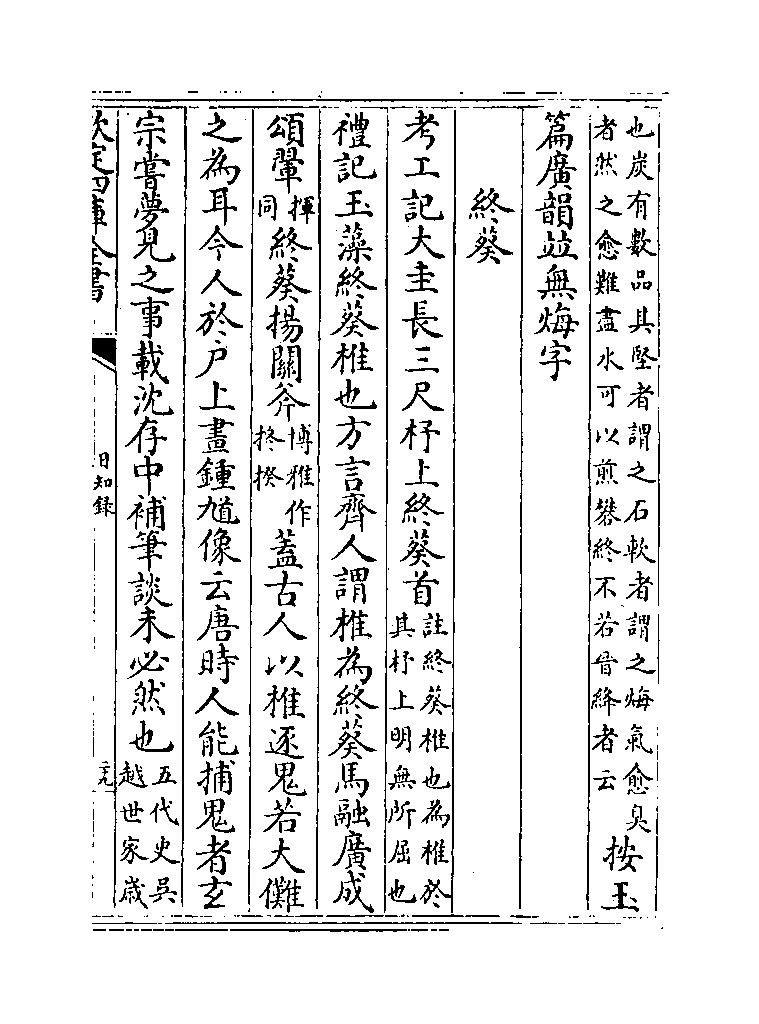 也炭有數品其堅者謂之石軟者謂之㶬氣愈臭
者然之愈難盡水可以煎礬終不若晉絳者云
按玉
篇廣韻竝無㶬字
終葵
考工記大圭長三尺杼上終葵首
註終葵椎也為椎於
其杼上明無所屈也
禮記玉藻終葵椎也方言齊人謂椎為終葵馬融廣成
頌翬
揮
同
終葵揚關斧
博雅作
柊揆
蓋古人以椎逐鬼若大儺
之為耳今人於戶上畫鍾馗像云唐時人能捕鬼者玄
宗嘗夢見之事載沈存中補筆談未必然也
五代史吳
越世家歲
欽定四庫全書
日知錄